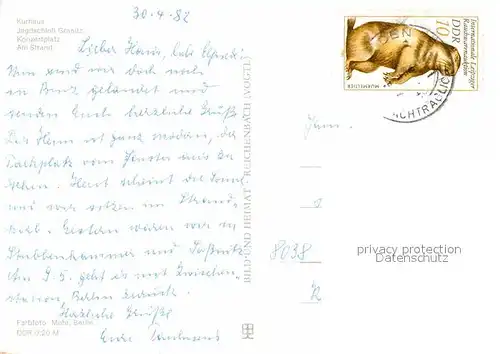 30.4.82
Kurhaus
Jagdschloß Granitz
Konzertplatz
Am Strand
Lieber Hans, liebe
Nun sind wir doch noch
in Binz gelandet und
senden Euch herzliche Grüße
Das Heim ist ganz modern, der
Parkplatz vom Fenster aus zu
sehen. Heut scheint die Sonne
und wir sitzen im Strand-
korb. Gestern waren wir in
Stubbenkammer und Saßnitz
Am 9.5. geht es mit Zwischen-
station Berlin zurück.
Herzliche Grüße
Eure
Farbfoto: Mohr, Berlin
DDR 0,20 M
BILD UND HEIMAT REICHENBACH (VOGTL)
Internationale Leipziger
Rauchwarenauktion
DDR
10
MURMELTIER
NACHTRÄGLICH
Fam.
8038
privacy protection
Datenschutz